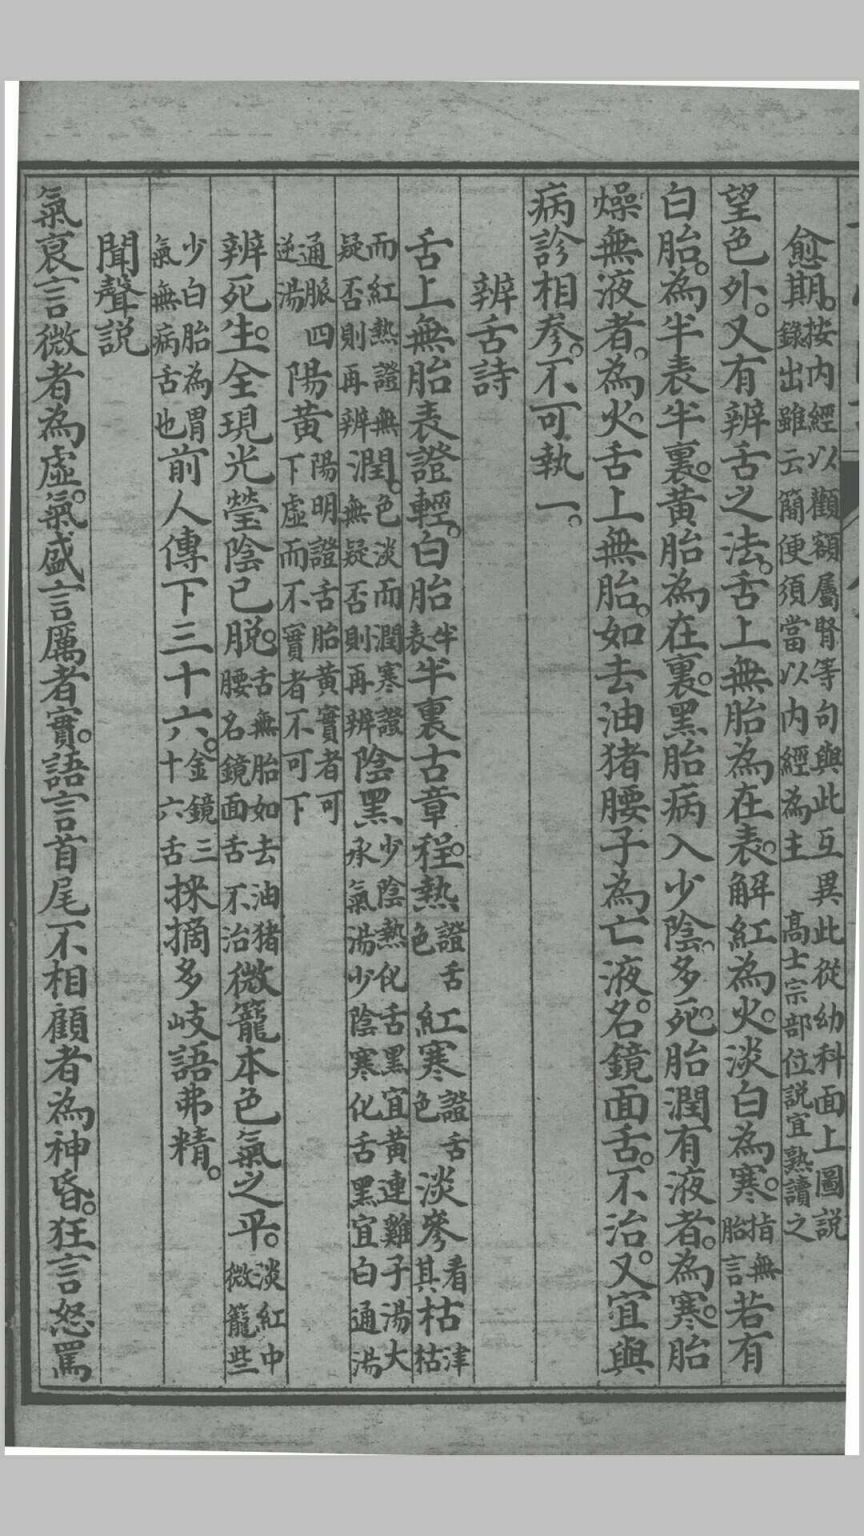 愈期。按內經以顴額屬腎等句與此互異此從幼科面上圖說
錄出雖云簡便須當以內經為主　高士宗部位說宜熟讀之
望色外。又有辨舌之法。舌上無胎為在表。解紅為火。淡白為寒。指無胎言若有
白胎。為半表半裏。黃胎為在裏。黑胎病入少陰。多死。胎潤有液者。為寒。胎
燥無液者。為火。舌上無胎。如去油猪腰子為亡液。名鏡面舌。不治。又宜與
病診相參。不可執一。
辨舌詩
舌上無胎表證輕。白胎半表半裏古章程。熱證舌色紅寒證舌色淡參看其枯津枯
而紅熱證無疑否則再辨潤。色淡而潤寒證無疑否則再辨陰黑少陰熱化舌黑宜黃連雞子湯大承氣湯少陰寒化舌黑宜白通湯
通脈四逆湯陽黃陽明證舌胎黃實者可下虛而不實者不可下
辨死生。全現光瑩陰已脫。舌無胎如去油猪腰名鏡面舌不治微籠本色氣之平。淡紅中微籠些
少白胎為胃氣無病舌也前人傳下三十六。金鏡三十六舌採摘多岐語弗精。
聞聲說
氣衰言微者為虛。氣盛言厲者實。語言首尾不相顧者為神昏。狂言怒罵